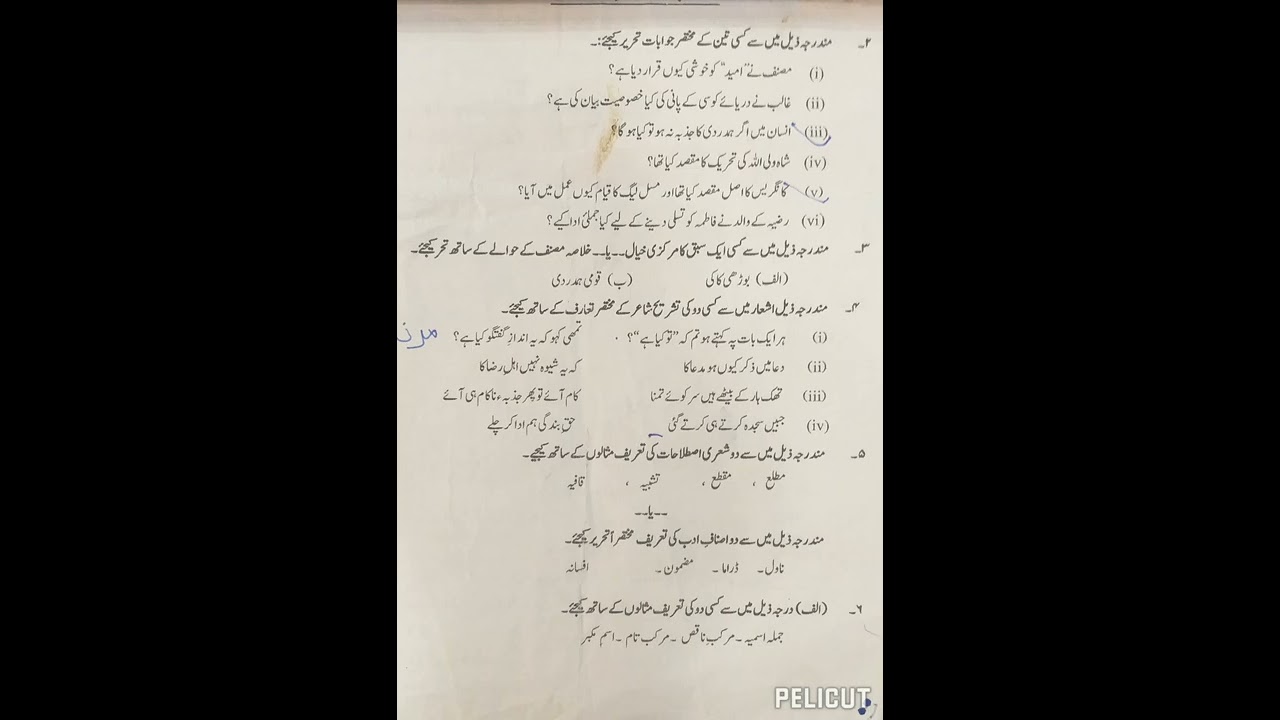 ۲۔ مندرجہ ذیل میں سے کسی تین کے مختصر جوابات تحریر کیجئے:۔
(i) مصنف نے "امید" کو خوشی کیوں قرار دیا ہے؟
(ii) غالب نے دریائے کوسی کے پانی کی کیا خصوصیت بیان کی ہے؟
(iii) انسان میں اگر ہمدردی کا جذبہ نہ ہو تو کیا ہوگا؟
(iv) شاہ ولی اللہ کی تحریک کا مقصد کیا تھا؟
(v) کانگریس کا اصل مقصد کیا تھا اور مسلم لیگ کا قیام کیوں عمل میں آیا؟
(vi) رضیہ کے والد نے فاطمہ کو تسلی دینے کے لیے کیا جملے ادا کیے؟
۳۔ مندرجہ ذیل میں سے کسی ایک سبق کا مرکزی خیال ۔۔یا۔۔ خلاصہ مصنف کے حوالے کے ساتھ تحریر کیجئے۔
(الف) بوڑھی کاکی (ب) قومی ہمدردی
۴۔ مندرجہ ذیل اشعار میں سے کسی دو کی تشریح شاعر کے مختصر تعارف کے ساتھ کیجئے۔
(i) ہر ایک بات پہ کہتے ہو تم کہ "تو کیا ہے"؟ تمھی کہو کہ یہ اندازِ گفتگو کیا ہے؟
(ii) دعا میں ذکر کیوں ہو مدعا کا کہ یہ شیوہ نہیں اہلِ رضا کا
(iii) تھک ہار کے بیٹھے ہیں سر کوئے تمنا کام آئے تو پھر جذبہء ناکام ہی آئے
(iv) جبیں سجدہ کرتے ہی کرتے گئی حقِ بندگی ہم ادا کر چلے
۵۔ مندرجہ ذیل میں سے دو شعری اصطلاحات کی تعریف مثالوں کے ساتھ کیجیے۔
مطلع ، مقطع ، تشبیہ ، قافیہ
۔۔یا۔۔
مندرجہ ذیل میں سے دو اصنافِ ادب کی تعریف مختصراً تحریر کیجئے۔
ناول ۔ ڈراما ۔ مضمون ۔ افسانہ
۶۔ (الف) درجہ ذیل میں سے کسی دو کی تعریف مثالوں کے ساتھ کیجئے۔
جملہ اسمیہ ۔ مرکبِ ناقص ۔ مرکب تام ۔ اسم مکبر
PELICUT